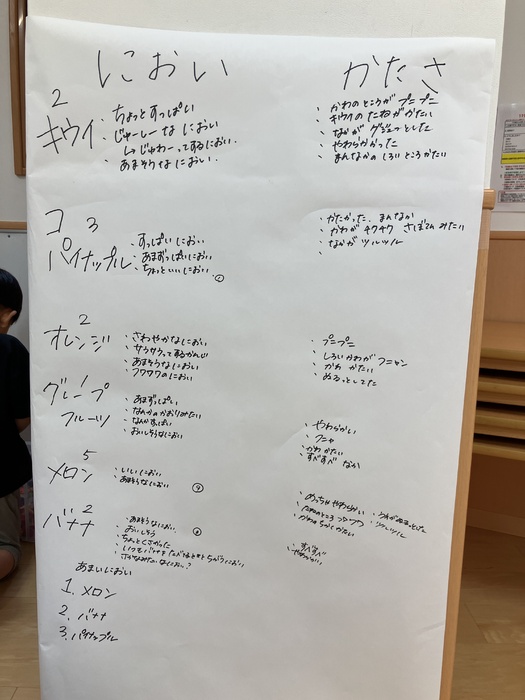 におい
かたさ
2
キウイ
・ちょっとすっぱい
・じゅーしーなにおい
↳じゅわーってするにおい.
・あまそうなにおい.
・かわのところがプニプニ
・キウイのたねがかたい
・なかがグジュッとした
・やわらかかった
・まんなかのしろいところかたい
3
パイナップル
・すっぱいにおい
・あまずっぱいにおい
・ちょっといいにおい.
・かたかった、まんなか
・かわがチクチク さぼてんみたい
・なかがツルツル
2
オレンジ
・さわやかなにおい
・あまそうなにおい
・フワフワのにおい
・プニプニ
・しろいかわがフニャン
・かわ かたい
・ぬるっとしてた
1
グレープ
フルーツ
・あまずっぱい
・なんかのかおりみたい
・なんかすっぱい
・おいしそうなにおい
・やわらかい
・フニャ
・かわかたい
・すべすべ なか
5
メロン
・いいにおい
・あまそうなにおい
・めっちゃやわらかい
2
バナナ
・あまそうなにおい.
・おいしそう
・ちょっとくさかった
・すべすべ
・やわらかい
あまいにおい
1. メロン
2. バナナ
3. パイナップル